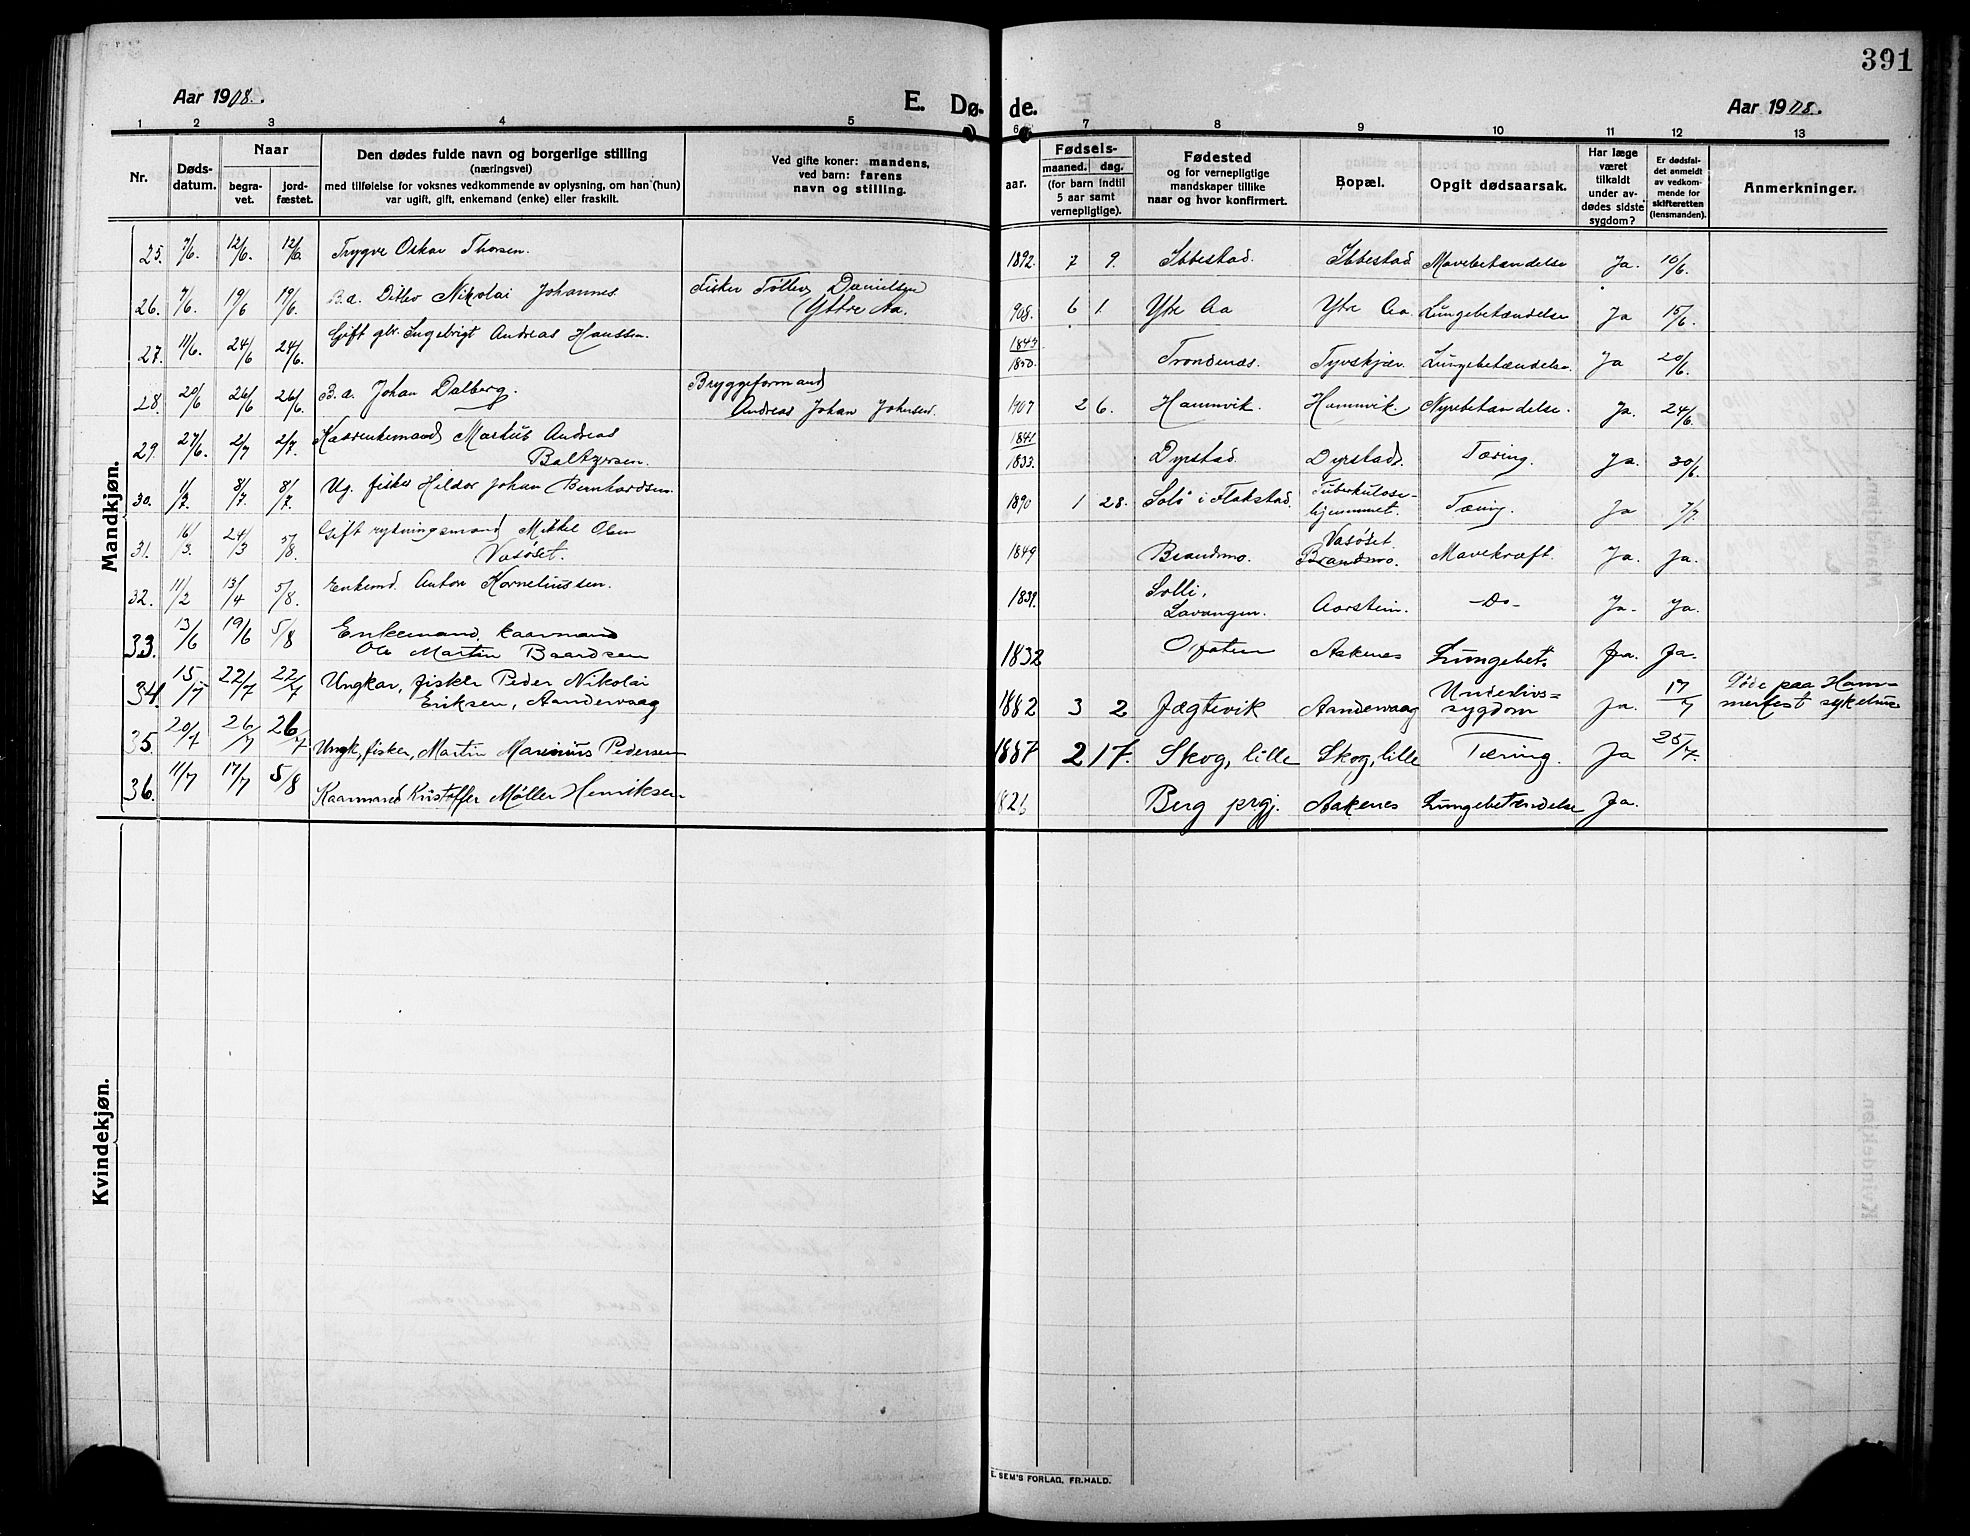 391
Aar 1908.
E. Dø- de.
Aar 1908.
1 2 3 4 5 6 7 8 9 10 11 12 13
Nr.
Døds-
datum.
Naar
begra-
vet.
jord-
fæstet.
Den dødes fulde navn og borgerlige stilling
(næringsvei)
med tilføielse for voksnes vedkommende av oplysning, om han (hun)
var ugift, gift, enkemand (enke) eller fraskilt.
Ved gifte koner: mandens,
ved barn: farens
navn og stilling.
aar.
Fødsels-
maaned. dag.
(for barn indtil
5 aar samt
vernepligtige).
Fødested
og for vernepligtige
mandskaper tillike
naar og hvor konfirmert.
Bopæl.
Opgit dødsaarsak.
Har læge
været
tilkaldt
under av-
dødes sidste
sygdom?
Er dødsfal-
det anmeldt
av vedkom-
mende for
skifteretten
(lensmanden).
Anmerkninger.
Mandkjøn.
25. 7/6. 12/6. 12/6. Trygve Oskar Thorsen. 1892. 7 9. Ibbestad. Ibbestad Mavebetændelse Ja. 10/6.
26. 7/6. 19/6 19/6. B.a. Ditlev Nikolai Johannes. Fisker Tollev Danielsen
Yttre Aa. 908. 6 1. Ytre Aa Ytre Aa. Lungebetændelse Ja 15/6.
27. 11/6. 24/6 24/6. Gift gbr. Ingebrigt Andreas Hanssen. 1843
1850. Trondenæs. Tyvskjær. Lungebetændelse. Ja 20/6.
28. 20/6 26/6 26/6. B.a. Johan Dalberg. Bryggeformand
Andreas Johan Johnsen. 1907 2 6. Hamnvik. Hamnvik. Nyrebetændelse. Ja. 24/6.
29. 27/6. 2/7 2/7. Kaarenkemand Martus Andreas
Baltzersen. 1841
1833. Dyrstad. Dyrstad. Tæring. Ja. 30/6
30. 1/7. 8/7 8/7. Ug. fisker Hildor Johan Bernhardsen. 1890 1 28. Solø i Flakstad. Tuberkulose-
hjemmet. Tæring. Ja 7/7
31. 16/3. 24/3 5/8. Gift rydningsmand Mikkel Olsen
Vasøset. 1849 Brandmo. Vasøset
Brandmo. Mavekræft. Ja. Ja.
32. 11/2 13/4 5/8. Enkemd. Anton Kornelinssen. 1839. Solli,
Lavangen. Aarstein. -Do- Ja. Ja.
33. 13/6 19/6 5/8 Enkemand, kaarmand
Ole Martin Baardsen 1832 Ofoten Aakenes Lungebet. Ja. Ja.
34. 15/7 22/7 22/7 Ungkar, fisker Peder Nikolai
Eriksen, Aandervaag 1882 3 2 Jægtevik Aandervaag Underlivs=
sygdom Ja. 17/7 Døde paa Ham-
merfest sykehus
35. 20/7 26/7 26/7 Ungk, fisker, Martin Marenius Pedersen 1887 2 17. Skog, lille Skog, lille Tæring. Ja 25/7.
36. 11/7 17/7 5/8 Kaarmand Kristoffer Møller Henriksen 1826 Berg prgj. Aakenes Lungebetændelse Ja.
Kvindekjøn.
E. SEM'S FORLAG, FR.HALD.